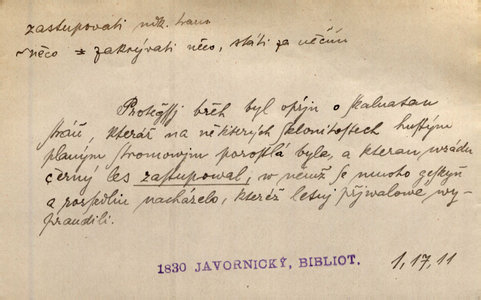 zastupovati někomu
něco = zakrývati něco, státi za něčím
Protějssj břeh byl opjn o skalnatau
stráň, kteráž na některých sklonitostech hustým
planým stromowjm porostlá byla, a kterau wzadu
černý les zastupowal, w němž se mnoho geskyň
a rozsedlin nacházelo, kteréž letnj přjwalowé wy-
praudili.
1830 JAVORNICKÝ, BIBLIOT. 1, 17, 11